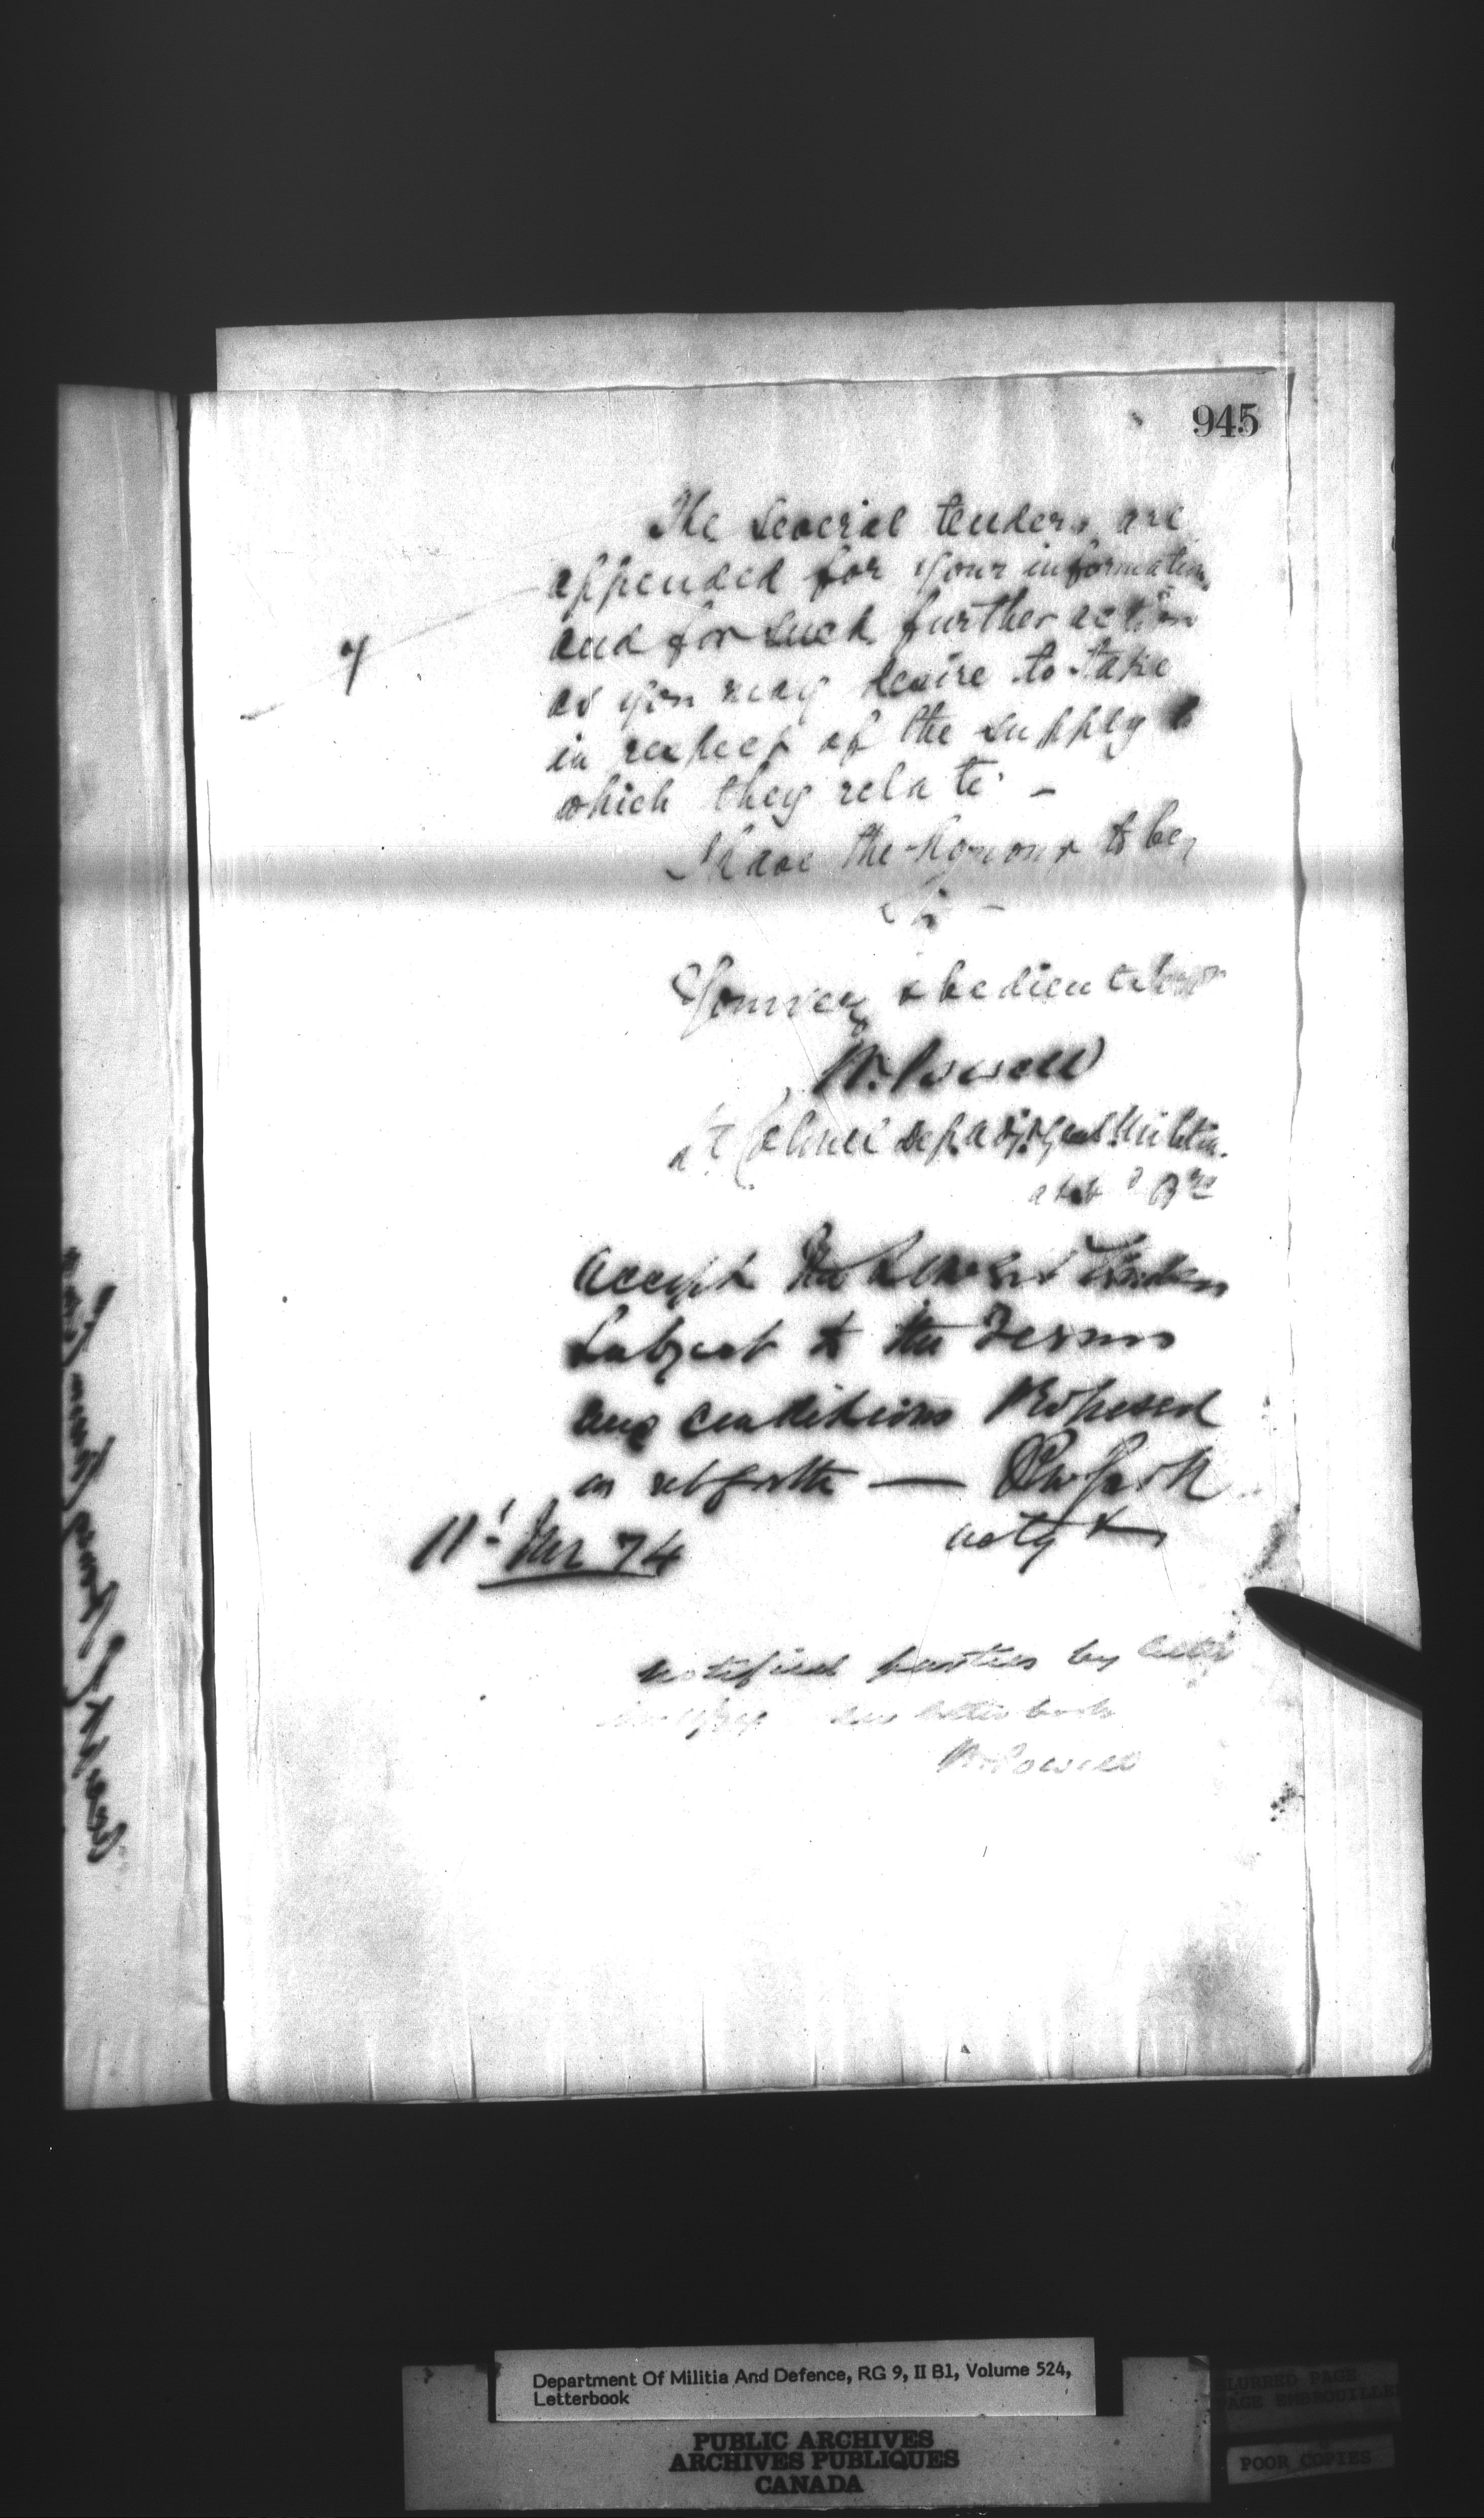 945
The several tenders are
appended for your information
and for such further action
as you may desire to take
in respect of the supply to
which they relate -
I have the honour to be,
Sir -
Your very obedient
W. Powell
Lt Colonel Dep. Adjt. Genl. Militia.
Accept the lowest Tender
Subject to the Terms
and conditions Proposed
as set forth —
11t Mar 74
notified parties by letter
see letter book
W. Powell
Department Of Militia And Defence, RG 9, II B1, Volume 524,
Letterbook
PUBLIC ARCHIVES
ARCHIVES PUBLIQUES
CANADA
BLURRED PAGE
PAGE EMBROUILLEE
POOR COPIES